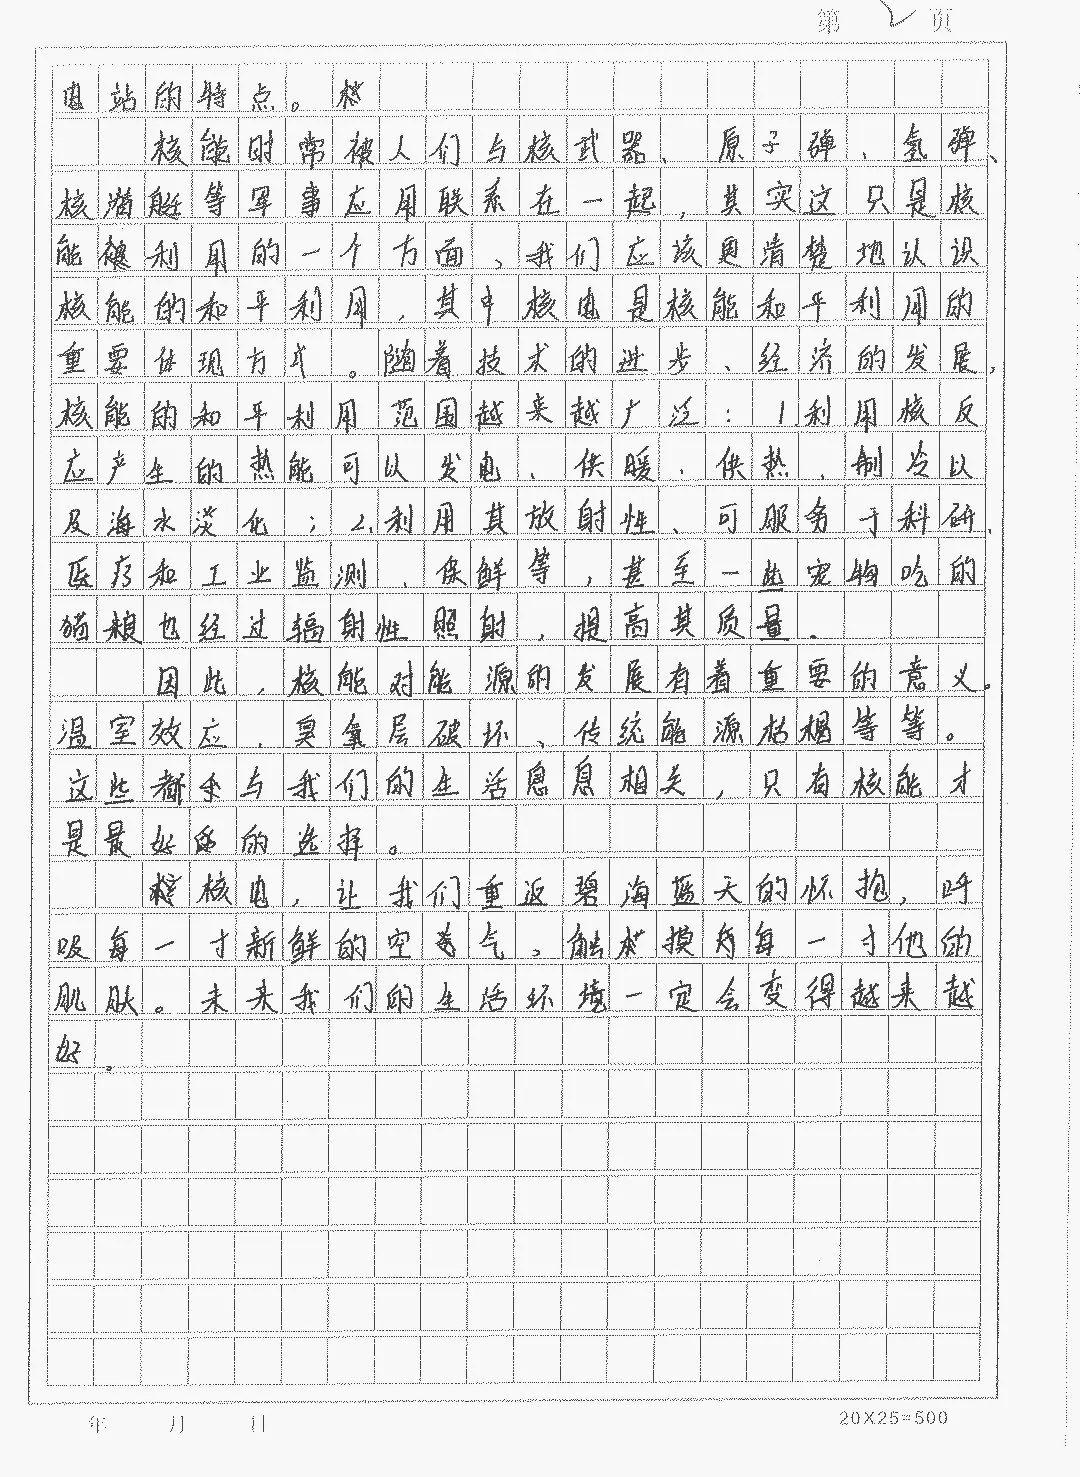 第 2 页
电站的特点。核
核能时常被人们与核武器、原子弹、氢弹、
核潜艇等军事应用联系在一起,其实这只是核
能被利用的一个方面、我们应该更清楚地认识
核能的和平利用,其中核电是核能和平利用的
重要体现方式。随着技术的进步、经济的发展,
核能的和平利用范围越来越广泛:1利用核反
应产生的热能可以发电、供暖、供热、制冷以
及海水淡化;2.利用其放射性、可服务于科研、
医疗和工业监测、保鲜等,甚至一些宠物吃的
猫粮也经过辐射性照射,提高其质量.
因此,核能对能源的发展有着重要的意义。
温室效应、臭氧层破坏、传统能源枯榻等等。
这些都与我们的生活息息相关,只有核能才
是最好的选择。
核电,让我们重返碧海蓝天的怀抱,呼
吸每一寸新鲜的空气,触摸每一寸他的
肌肤。未来我们的生活环境一定会变得越来越
好.
年 月 日
20X25=500